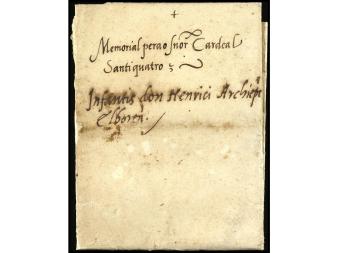 +
Memorial pera o snõr Cardeal
Santiquatro
Infantis don Henrici Archiepi
Elboren.